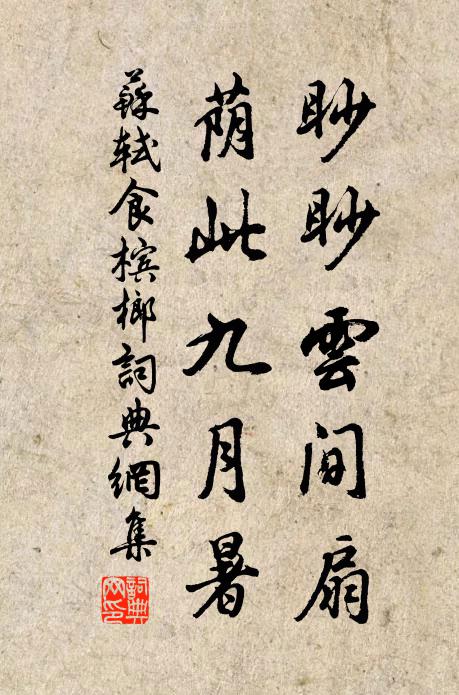 眇眇雲間扇
荫此九月暑
蘇軾食檳榔詞典網集
詞典
网印